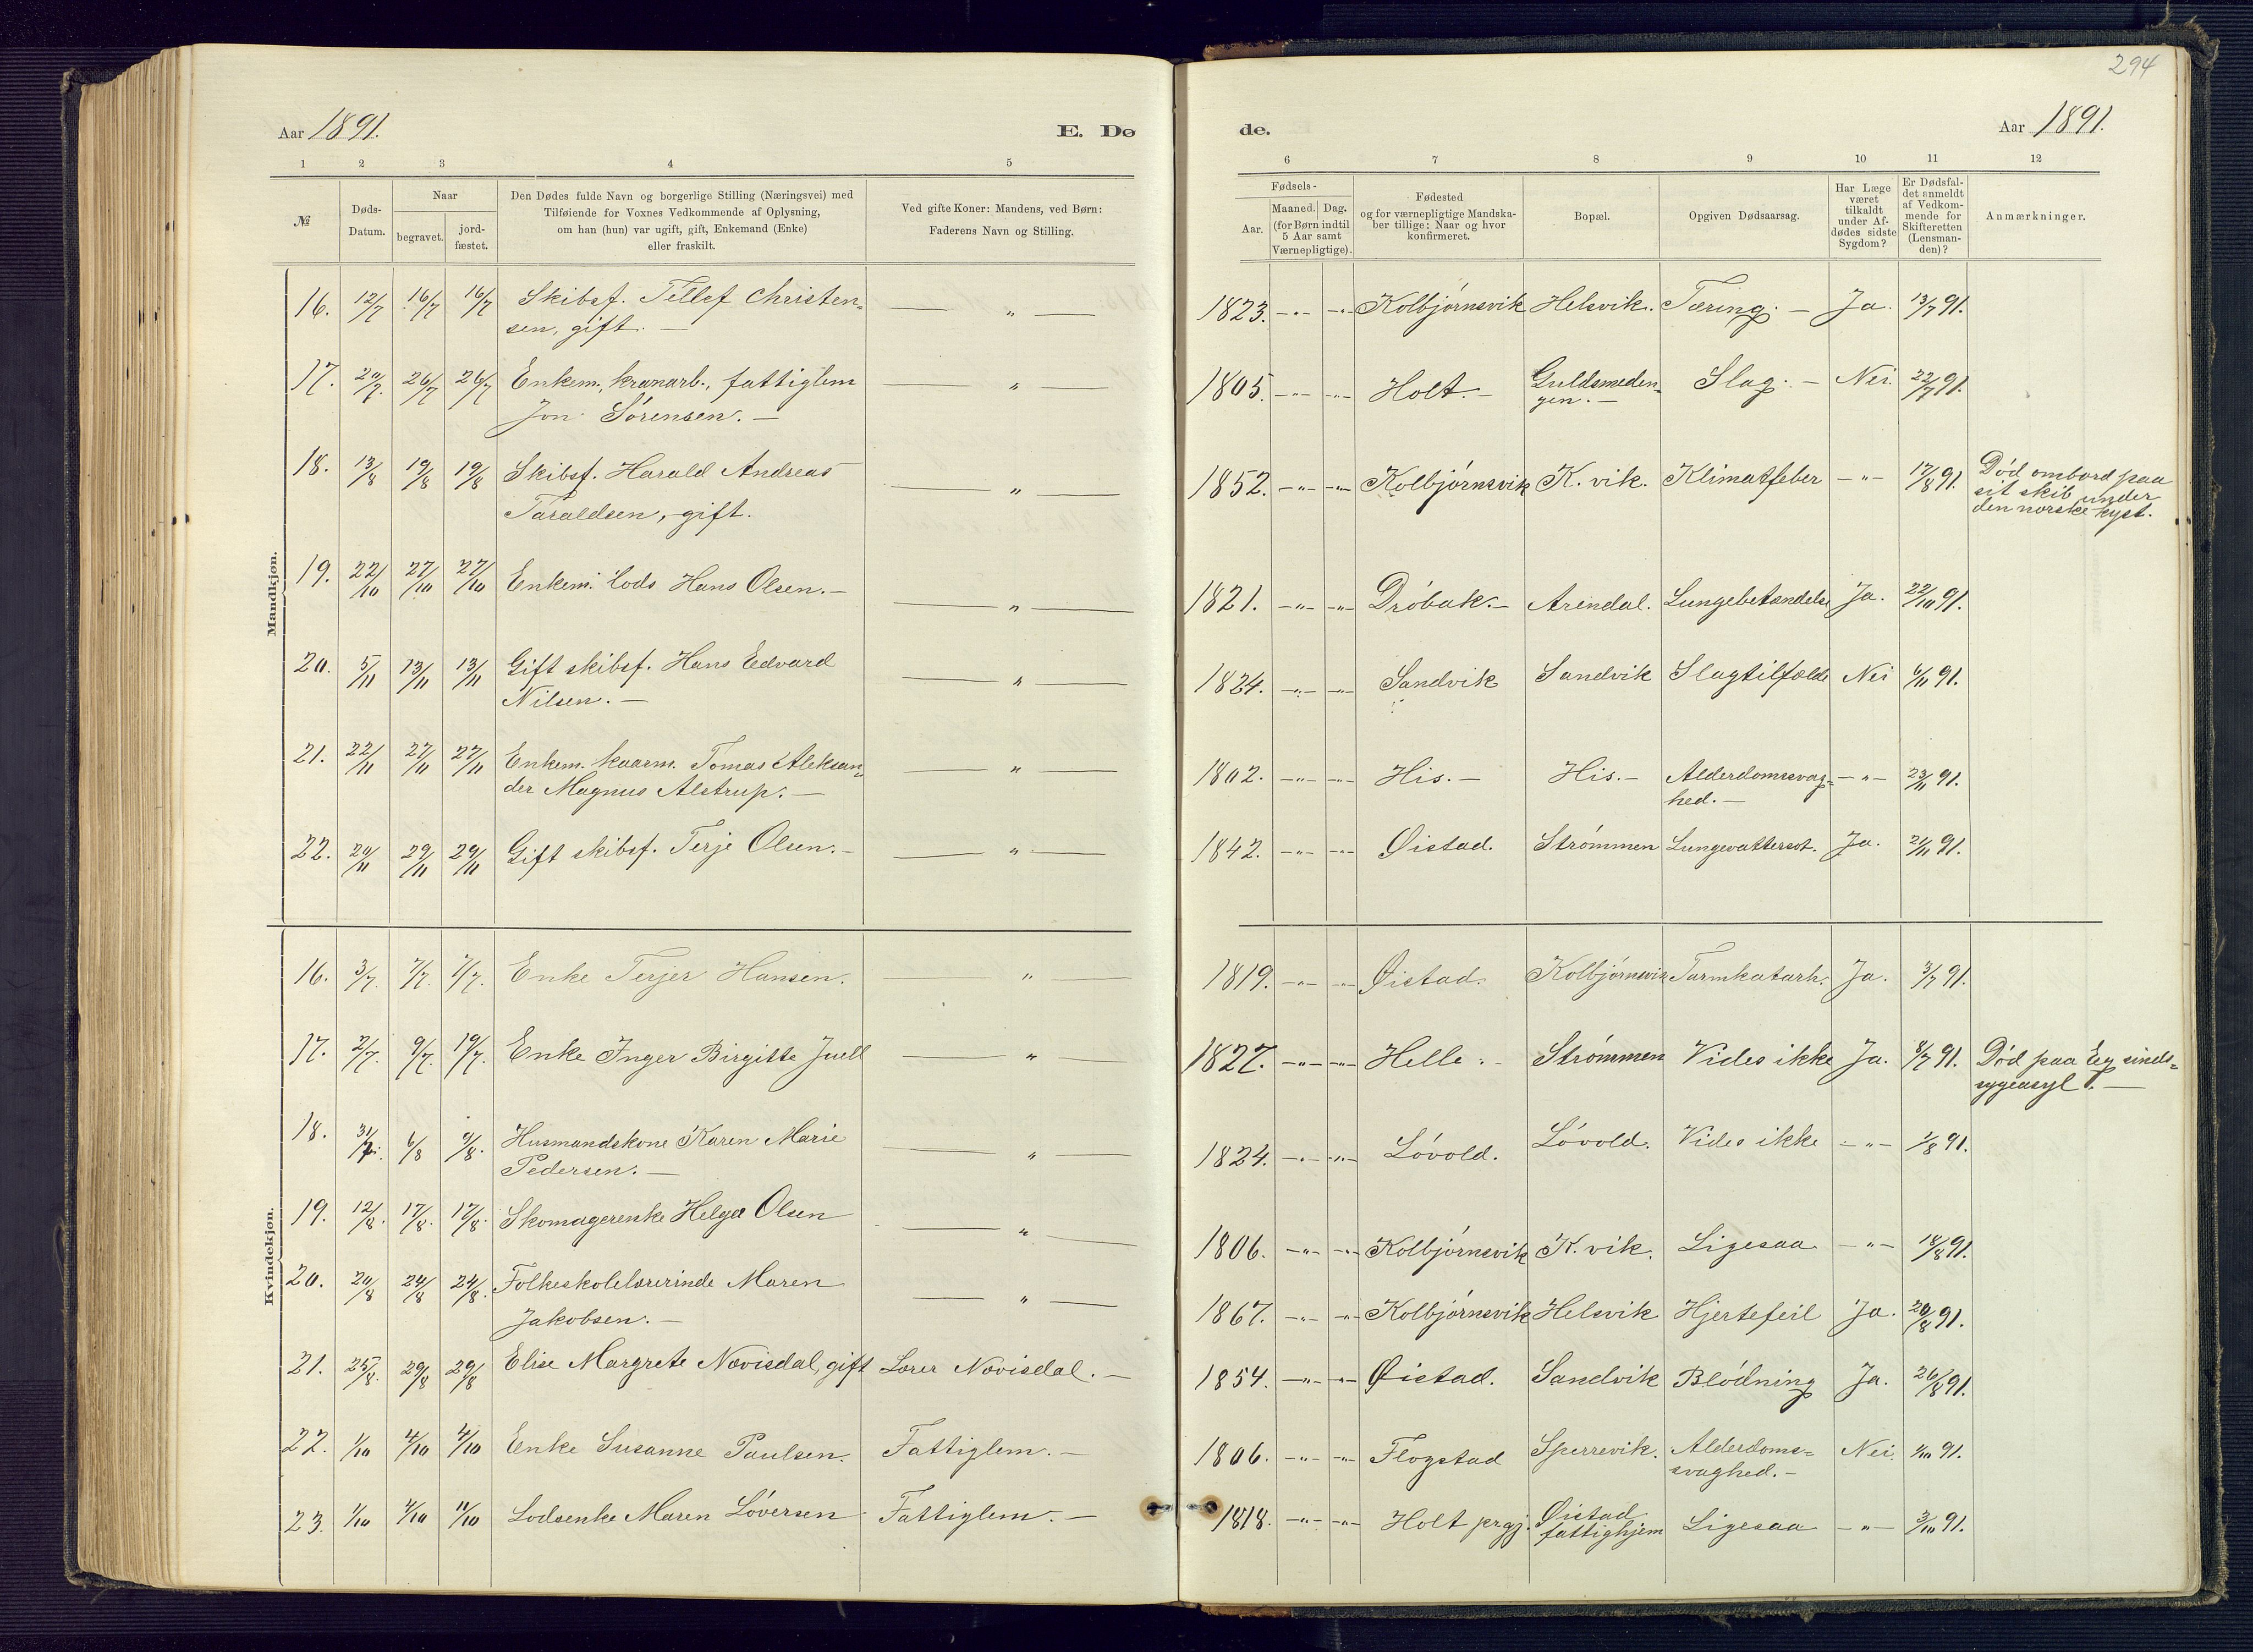 294
Aar 1891.
E. Dø
de.
Aar 1891.
1 2 3 4 5
6 7 8 9 10 11 12
№
Døds-
Datum.
Naar
begravet.
jord-
fæstet.
Den Dødes fulde Navn og borgerlige Stilling (Næringsvei) med
Tilføiende for Voxnes Vedkommende af Oplysning,
om han (hun) var ugift, gift, Enkemand (Enke)
eller fraskilt.
Ved gifte Koner: Mandens, ved Børn:
Faderens Navn og Stilling.
Fødsels-
Aar.
Maaned. Dag.
(for Børn indtil
5 Aar samt
Værnepligtige).
Fødested
og for værnepligtige Mandska-
ber tillige: Naar og hvor
konfirmeret.
Bopæl.
Opgiven Dødsaarsag.
Har Læge
været
tilkaldt
under Af-
dødes sidste
Sygdom?
Er Dødsfal-
det anmeldt
af Vedkom-
mende for
Skifteretten
(Lensman-
den)?
Anmærkninger.
Mandkjøn.
16. 12/7 16/7 16/7 Skibsf. Tellef Christen- — " — 1823. —"— —"— Kolbjørnsvik Helsvik. Tæring. — Ja. 13/7 91.
sen, gift. —
17. 20/7. 26/7 26/7 Enkem., kranarb., fattiglem — " — 1805. —"— —"— Holt. — Guldsmeden- Slag. — Nei. 22/7 91.
Jon Sørensen. — gen. —
18. 13/8 19/8 19/8 Skibsf. Harald Andreas — " — 1852. —"— —"— Kolbjørnsvik K. vik. Klimatfeber —"— 17/8 91. Død ombord paa
Taraldsen, gift. sit skib under
den norske kyst.
19. 22/10 27/10 27/10 Enkem. lods Hans Olsen. — — " — 1821. —"— —"— Drøbak. — Arendal. Lungebetændelse Ja. 22/10 91.
20. 5/11 13/11 13/11 Gift skibsf. Hans Edvard — " — 1824. —"— —"— Sandvik Sandvik Slagtilfælde Nei 6/11 91.
Nilsen. —
21. 22/11 27/11 27/11 Enkem. kaarm. Tomas Aleksan- — " — 1802. —"— —"— His. — His. — Alderdomssvag- —"— 23/11 91.
der Magnus Alstrup. — hed. —
22. 20/11 29/11 29/11 Gift skibsf. Terje Olsen. — — " — 1842. —"— —"— Øistad. Strømmen Lungevattersot. Ja. 21/11 91.
Kvindekjøn.
16. 3/7. 7/7. 7/7. Enke Terjer Hansen. — " — 1819. —"— —"— Øistad. Kolbjørnsvik Tarmkatarh. Ja. 3/7 91.
17. 2/7. 9/7. 19/7. Enke Inger Birgitte Juell — " — 1827. —"— —"— Helle. — Strømmen Vides ikke Ja. 8/7 91. Død paa Eg sinds-
sygeasyl. —
18. 31/7. 6/8 9/8. Husmandskone Karen Marie — " — 1824. —"— —"— Løvold. Løvold. Vides ikke —"— 1/8 91.
Pedersen. —
19. 12/8. 17/8. 17/8. Skomagerenke Helga Olsen — " — 1806. —"— —"— Kolbjørnsvik K. vik. Ligesaa —"— 18/8 91.
20. 20/8 24/8 24/8. Folkeskolelærerinde Maren — " — 1867. —"— —"— Kolbjørnsvik Helsvik Hjertefeil Ja. 20/8 91.
Jakobsen. —
21. 25/8. 29/8 29/8 Elise Margrete Nævisdal, gift Lærer Nævisdal. — 1854. —"— —"— Øistad. Sandvik Blødning Ja. 26/8 91.
22. 1/10 4/10 4/10 Enke Susanne Paulsen. Fattiglem. — 1806. —"— —"— Flogstad Sperrevik. Alderdoms- Nei. 1/10 91.
svaghed. —
23. 1/10 4/10 11/10 Lodsenke Maren Løversen Fattiglem. — 1818. —"— —"— Holt prgj. Øistad Ligesaa —"— 3/10 91.
fattighjem